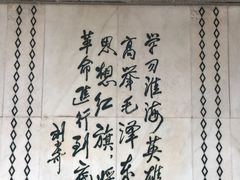 学习淮海英雄
高举毛泽东
思想红旗，将
革命进行到底
刘少奇